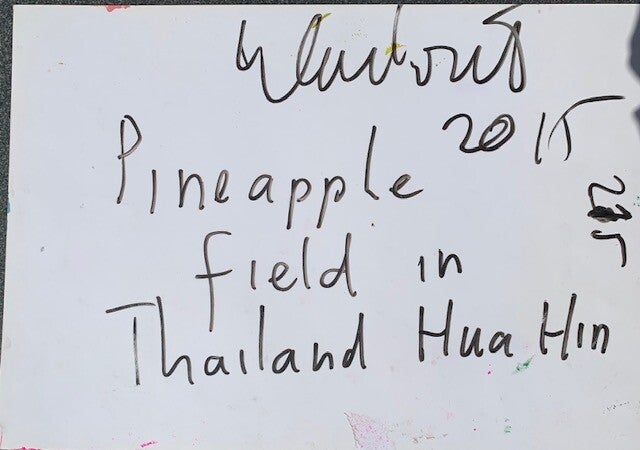 2015
Pineapple
field in
Thailand Hua Hin